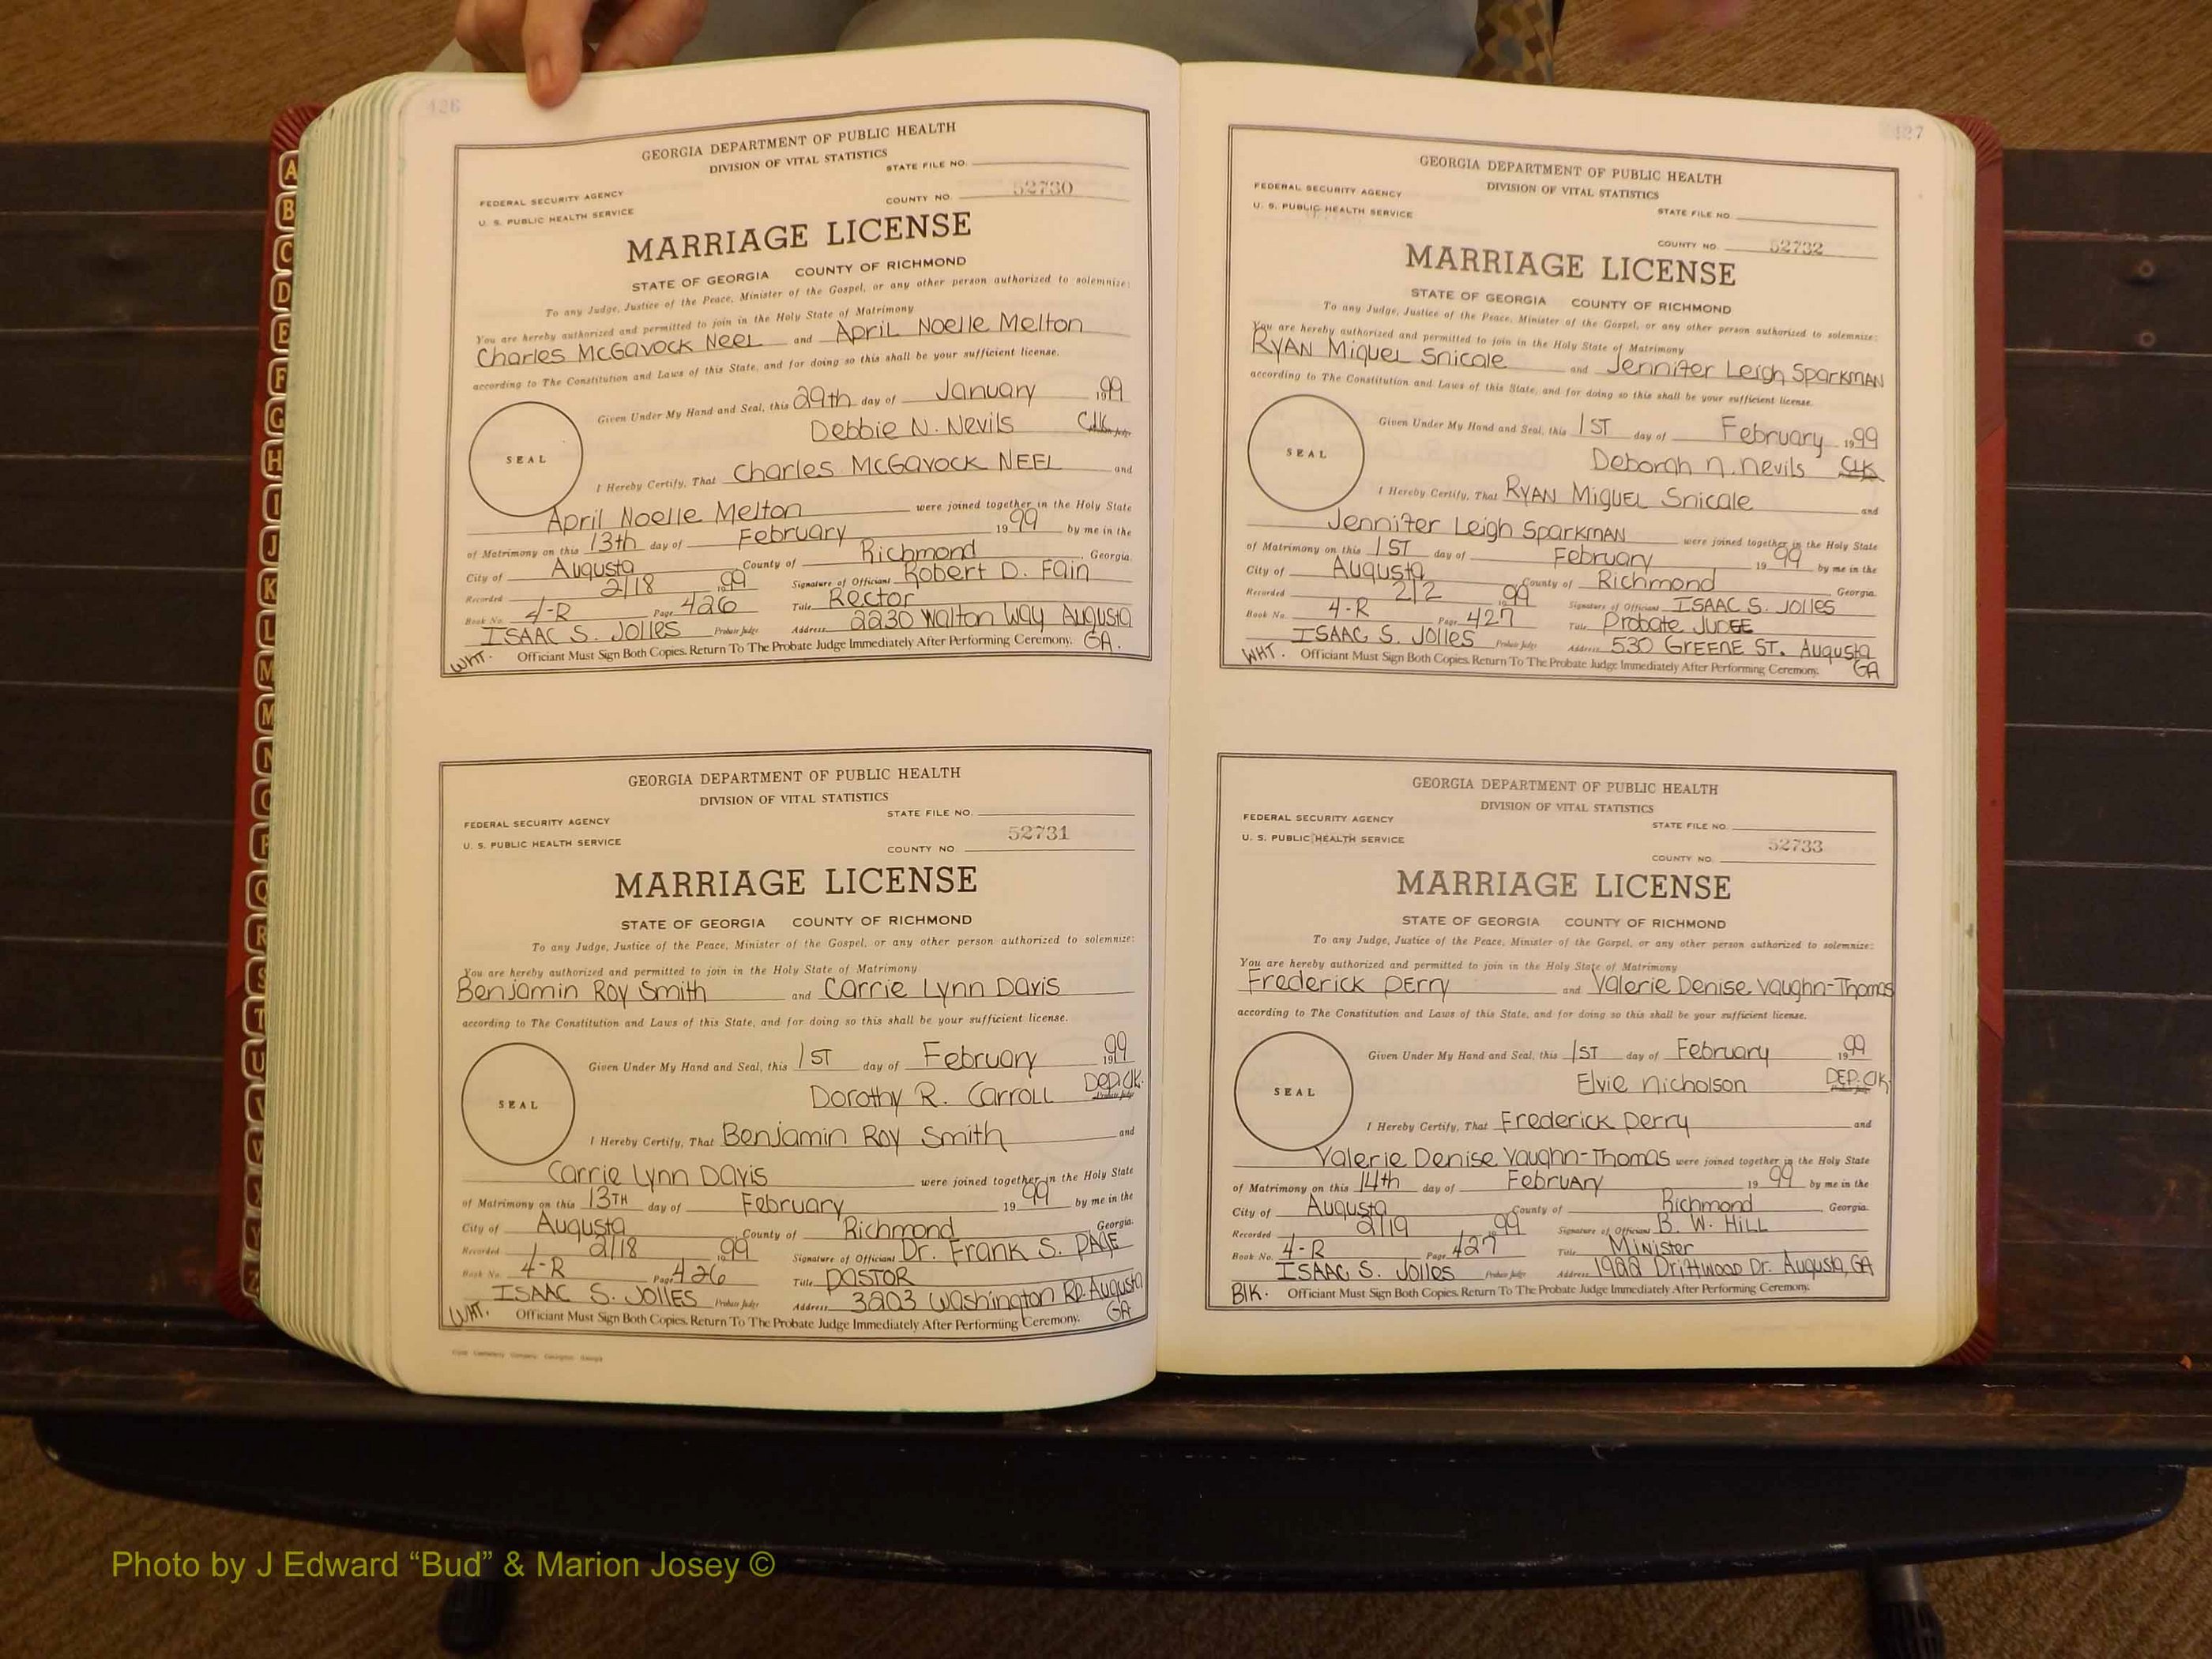 A
B
C
D
E
F
G
H
I
J
K
L
M
M
N
O
P
Q
R
S
T
U
V
W
X
Y
Z
426
GEORGIA DEPARTMENT OF PUBLIC HEALTH
DIVISION OF VITAL STATISTICS
STATE FILE NO.
FEDERAL SECURITY AGENCY
U. S. PUBLIC HEALTH SERVICE
COUNTY NO. 52730
MARRIAGE LICENSE
STATE OF GEORGIA COUNTY OF RICHMOND
To any Judge, Justice of the Peace, Minister of the Gospel, or any other person authorized to solemnize:
You are hereby authorized and permitted to join in the Holy State of Matrimony
Charles McGavock Neel and April Noelle Melton
according to The Constitution and Laws of this State, and for doing so this shall be your sufficient license.
Given Under My Hand and Seal, this 29th day of January 1999
Debbie N. Nevils Clk
SEAL
I Hereby Certify, That Charles McGavock NEEL and
April Noelle Melton were joined together in the Holy State
of Matrimony on this 13th day of February 19 99 by me in the
City of Augusta County of Richmond, Georgia.
Recorded 2/18 1999 Signature of Officiant Robert D. Fain
Book No. 4-R Page 426 Title Rector
ISAAC S. JOLLES Probate Judge Address 2230 Walton Way Augusta
WHT. Officiant Must Sign Both Copies. Return To The Probate Judge Immediately After Performing Ceremony. GA.
GEORGIA DEPARTMENT OF PUBLIC HEALTH
DIVISION OF VITAL STATISTICS
STATE FILE NO.
FEDERAL SECURITY AGENCY
U. S. PUBLIC HEALTH SERVICE
52731
COUNTY NO
MARRIAGE LICENSE
STATE OF GEORGIA COUNTY OF RICHMOND
To any Judge, Justice of the Peace, Minister of the Gospel, or any other person authorized to solemnize:
You are hereby authorized and permitted to join in the Holy State of Matrimony
Benjamin Roy Smith and Carrie Lynn Davis
according to The Constitution and Laws of this State, and for doing so this shall be your sufficient license.
Given Under My Hand and Seal, this 1ST day of February 1999
Dorothy R. Carroll DEP.Clk.
SEAL
I Hereby Certify, That Benjamin Roy Smith and
Carrie Lynn Davis were joined together in the Holy State
of Matrimony on this 13TH day of February 19 99 by me in the
City of Augusta County of Richmond Georgia.
Recorded 2/18 1999 Signature of Officiant Dr. Frank S. PAGE
Book No. 4-R Page 426 Title PASTOR
ISAAC S. JOLLES Probate Judge Address 3203 Washington RD. Augusta
WHT. Officiant Must Sign Both Copies. Return To The Probate Judge Immediately After Performing Ceremony. GA
427
GEORGIA DEPARTMENT OF PUBLIC HEALTH
DIVISION OF VITAL STATISTICS
FEDERAL SECURITY AGENCY
U. S. PUBLIC HEALTH SERVICE
STATE FILE NO.
COUNTY NO. 52732
MARRIAGE LICENSE
STATE OF GEORGIA COUNTY OF RICHMOND
To any Judge, Justice of the Peace, Minister of the Gospel, or any other person authorized to solemnize:
You are hereby authorized and permitted to join in the Holy State of Matrimony
RYAN Miguel Snicale and Jennifer Leigh Sparkman
according to The Constitution and Laws of this State, and for doing so this shall be your sufficient license.
Given Under My Hand and Seal, this 1ST day of February 1999
Deborah N. Nevils Clk
SEAL
I Hereby Certify, That RYAN Miguel Snicale and
Jennifer Leigh Sparkman were joined together in the Holy State
of Matrimony on this 1ST day of February 19 99 by me in the
City of Augusta County of Richmond Georgia.
Recorded 2/2 1999 Signature of Officiant ISAAC S. JOLLES
Book No. 4-R Page 427 Title Probate JUDGE
ISAAC S. JOLLES Probate Judge Address 530 GREENE ST. Augusta
WHT. Officiant Must Sign Both Copies. Return To The Probate Judge Immediately After Performing Ceremony. GA
GEORGIA DEPARTMENT OF PUBLIC HEALTH
DIVISION OF VITAL STATISTICS
FEDERAL SECURITY AGENCY
U. S. PUBLIC HEALTH SERVICE
STATE FILE NO.
52733
COUNTY NO.
MARRIAGE LICENSE
STATE OF GEORGIA COUNTY OF RICHMOND
To any Judge, Justice of the Peace, Minister of the Gospel, or any other person authorized to solemnize:
You are hereby authorized and permitted to join in the Holy State of Matrimony
Frederick Perry and Valerie Denise Vaughn-Thomas
according to The Constitution and Laws of this State, and for doing so this shall be your sufficient license.
Given Under My Hand and Seal, this 1ST day of February 1999
Elvie Nicholson DEP. Clk
SEAL
I Hereby Certify, That Frederick Perry and
Valerie Denise Vaughn-Thomas were joined together in the Holy State
of Matrimony on this 14th day of February 19 99 by me in the
City of Augusta County of Richmond Georgia.
Recorded 2/19 99 Signature of Officiant B. W. HILL
Book No. 4-R Page 427 Title Minister
ISAAC S. JOLLES Probate Judge Address 1922 Driftwood Dr. Augusta, GA
BLK. Officiant Must Sign Both Copies. Return To The Probate Judge Immediately After Performing Ceremony.
Photo by J Edward “Bud” & Marion Josey ©